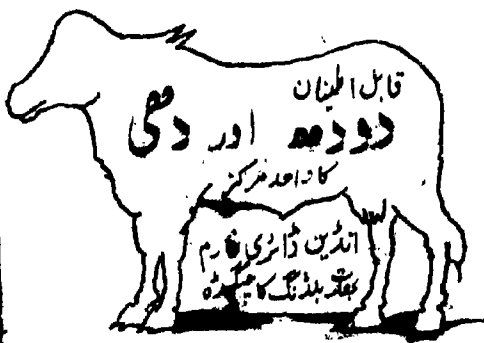 قابل اطینان
دودھ اور دھی
کا واحد مرکز
انڈین ڈائری فارم
بلڈنگ کاچیگوڑہ